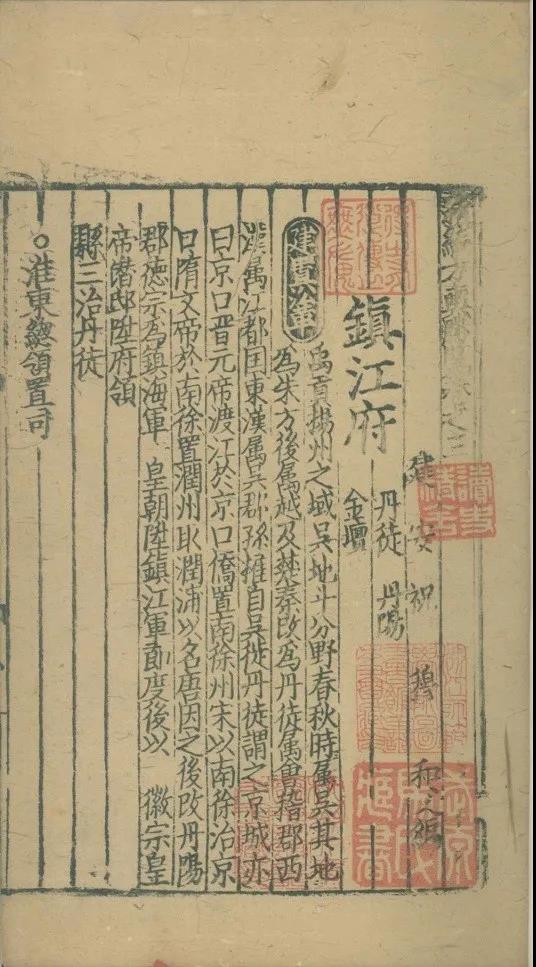 方輿勝覽卷之三
建安祝穆和父編
鎮江府
丹徒 丹陽
金壇
建置沿革 禹貢揚州之域吳地斗分野春秋時屬吳其地
為朱方後屬越及楚秦改為丹徒屬會指郡西
漢屬江都囯東漢屬吳郡孫權自吳徙丹徒謂之京城亦
曰京口晋元帝渡江於京口僑置南徐州宋以南徐治京
口隋文帝於南徐置潤州取潤浦以名唐因之後改丹陽
郡德宗為鎮海軍 皇朝陞鎮江軍節度後以 徽宗皇
帝潛邸陞府領
縣三治丹徒
○淮東緫領置司